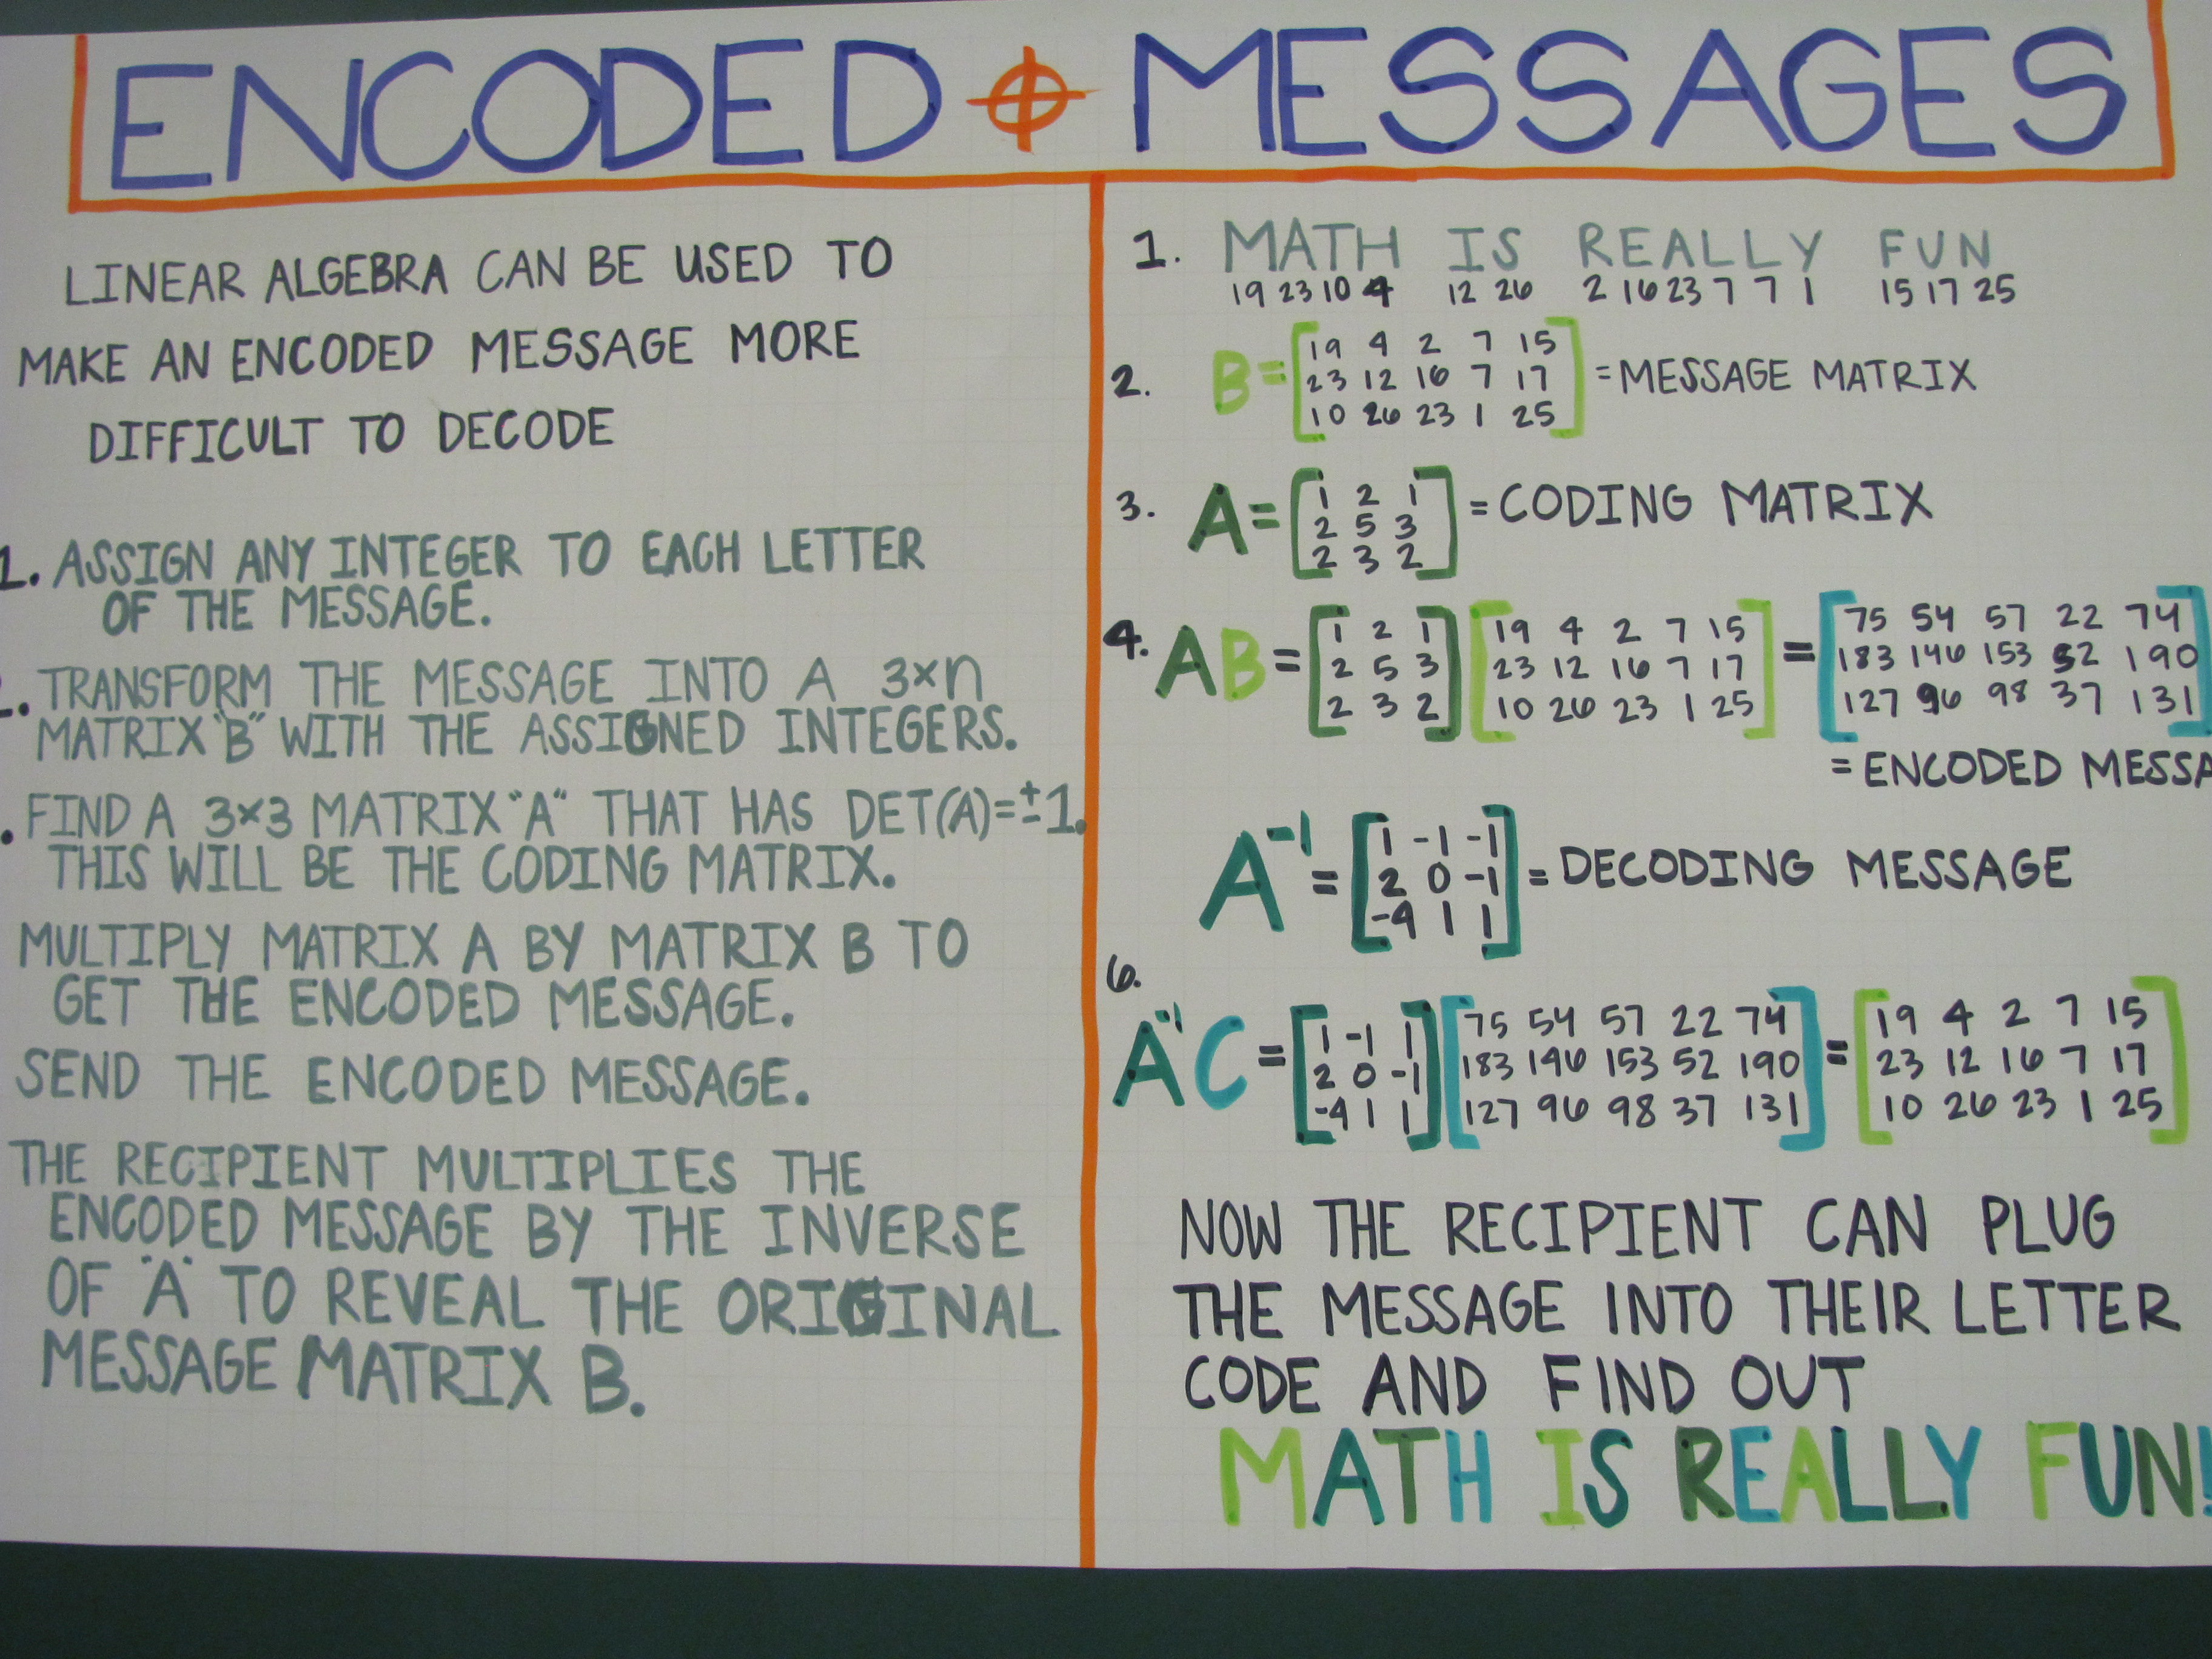 ENCODED MESSAGES
LINEAR ALGEBRA CAN BE USED TO
MAKE AN ENCODED MESSAGE MORE
DIFFICULT TO DECODE
1. ASSIGN ANY INTEGER TO EACH LETTER
OF THE MESSAGE.
. TRANSFORM THE MESSAGE INTO A 3×n
MATRIX "B" WITH THE ASSIGNED INTEGERS.
. FIND A 3×3 MATRIX "A" THAT HAS DET(A)=±1.
THIS WILL BE THE CODING MATRIX.
MULTIPLY MATRIX A BY MATRIX B TO
GET THE ENCODED MESSAGE.
SEND THE ENCODED MESSAGE.
THE RECIPIENT MULTIPLIES THE
ENCODED MESSAGE BY THE INVERSE
OF "A" TO REVEAL THE ORIGINAL
MESSAGE MATRIX B.
1. MATH IS REALLY FUN
19 23 10 4 12 26 2 16 23 7 7 1 15 17 25
19 4 2 7 15
2. B= 23 12 16 7 17 =MESSAGE MATRIX
10 26 23 1 25
1 2 1
3. A= 2 5 3 =CODING MATRIX
2 3 2
1 2 1 19 4 2 7 15 75 54 57 22 74
4. AB= 2 5 3 23 12 16 7 17 = 183 146 153 52 190
2 3 2 10 26 23 1 25 127 96 98 37 131
= ENCODED MESSA
1 -1 -1
A⁻¹= 2 0 -1 = DECODING MESSAGE
-4 1 1
6.
1 -1 1 75 54 57 22 74 19 4 2 7 15
A⁻¹C = 2 0 -1 183 146 153 52 190 = 23 12 16 7 17
-4 1 1 127 96 98 37 131 10 26 23 1 25
NOW THE RECIPIENT CAN PLUG
THE MESSAGE INTO THEIR LETTER
CODE AND FIND OUT
MATH IS REALLY FUN!